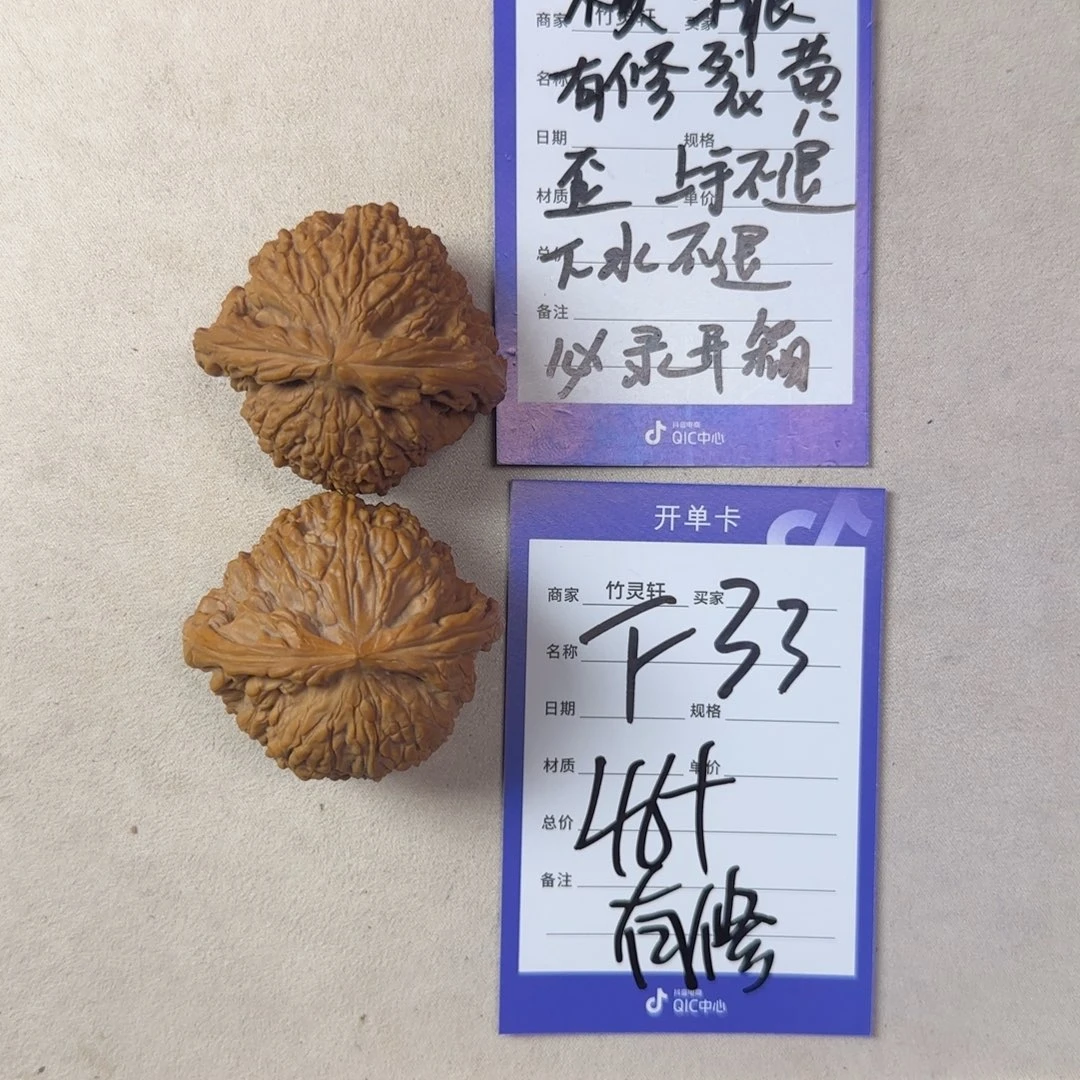 商家 竹灵轩 买家
名称 有修 裂 黄
日期 规格
材质 歪 单价 上手不退
总 下水不退
备注
必录开箱
抖音电商
QIC中心
开单卡
商家 竹灵轩 买家
名称 下33
日期 规格
材质 单价
总价 464
备注
有修
抖音电商
QIC中心